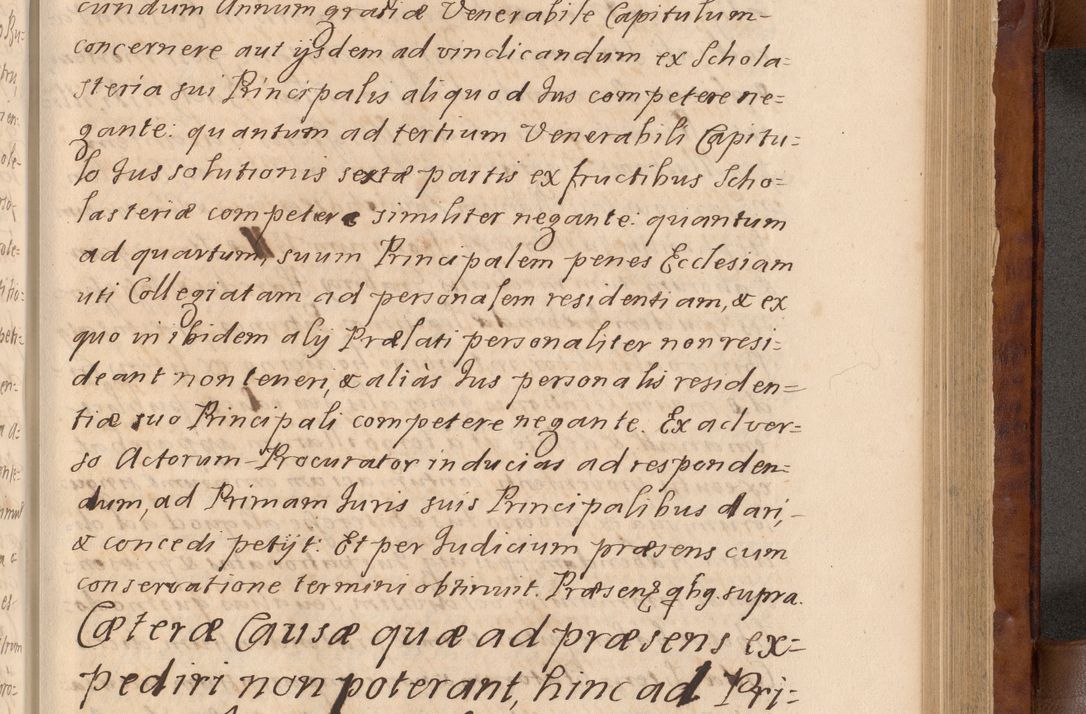 cundum Annum gratiæ Venerabile Capitulum
concernere aut ijsdem ad vindicandum ex Schola=
steria sui Principalis aliquod Jus competere ne=
gante: quantum ad tertium Venerabili Capitu=
lo Jus solutionis sextæ partis ex fructibus Scho=
lasteriæ competere similiter negante: quantum
ad quartum, suum Principalem penes Ecclesiam
uti Collegiatam ad personalem residentiam, & ex
quo inibidem alij Prælati personaliter non resi=
deant non teneri, & aliàs Jus personalis residen=
tiæ suo Principali competere negante. Ex adver=
so Actorum Procurator inducias ad responden=
dum, ad Primam Juris suis Principalibus dari,
& concedi petijt. Et per Judicium præsens cum
conservatione termini obtinuit. Præsen₃ qbg supra.
Cæteræ Causæ quæ ad præsens ex=
pediri non poterant, hinc ad Pri=